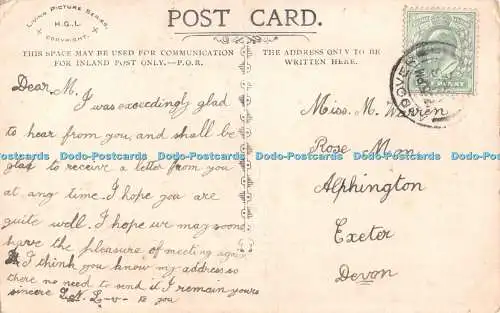 Living Picture Series.
H.G.L.
COPYRIGHT.
POST CARD.
THIS SPACE MAY BE USED FOR COMMUNICATION
FOR INLAND POST ONLY.—P.O.R.
THE ADDRESS ONLY TO BE
WRITTEN HERE.
Dear M.
I was exceedingly glad
to hear from you, and shall be
glad to receive a letter from you
at any time. I hope you are
quite well. I hope we may soon
have the pleasure of meeting again
I think you know my address so
there no need to send it I remain yours
sincere L.N. L-v- to you
Miss. M. Warren
Rose Mon
Alphington
Exeter
Devon
Dodo-Postcards Dodo-Postcards Dodo-Postcards Dodo-Postcards Dodo-Postcards
Dodo-Postcards Dodo-Postcards Dodo-Postcards Dodo-Postcards Dodo-Postcards